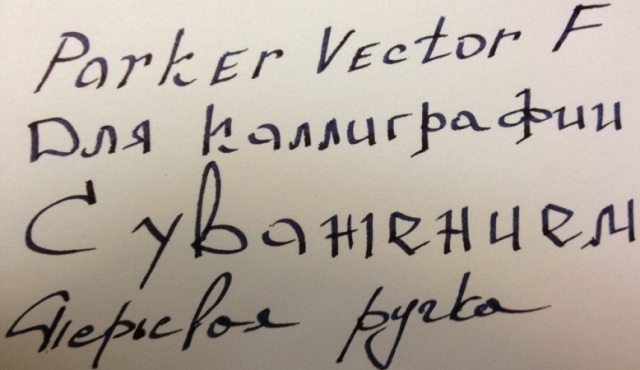 Parker Vector F
Для каллиграфии
С уважением
Перьевая ручка